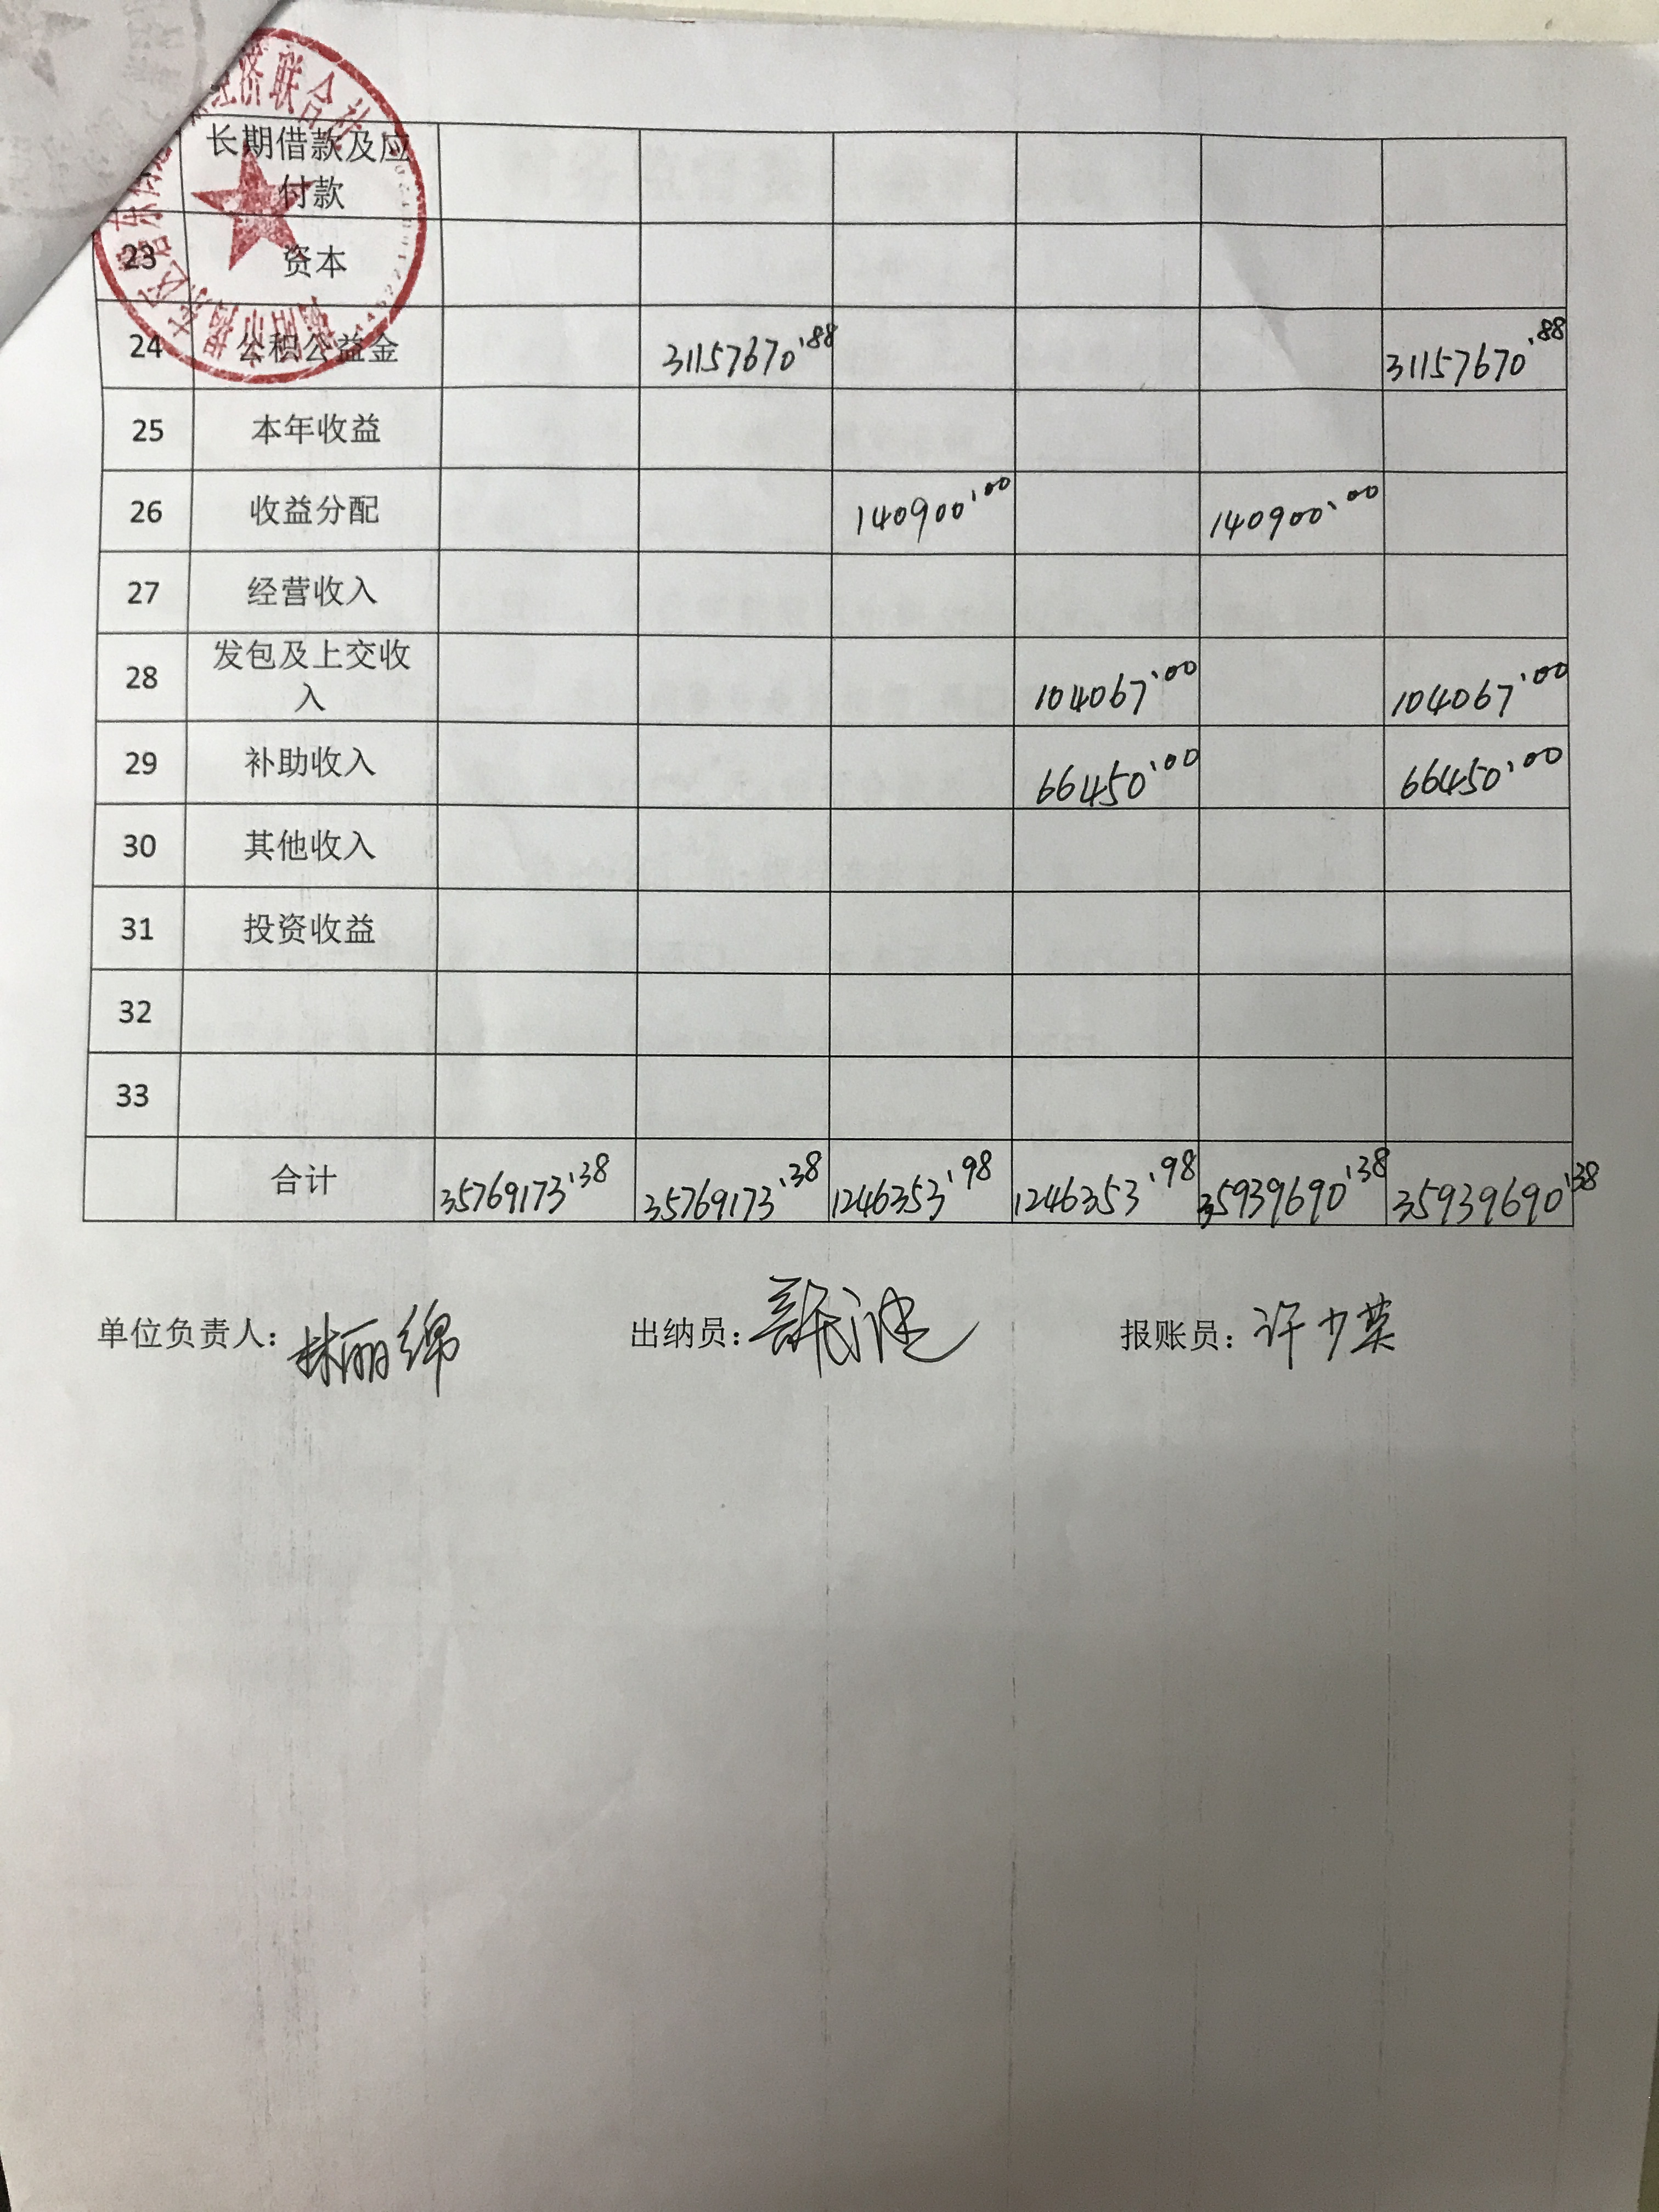 经济联合社
长期借款及应
付款
23 资本
24 公积公益金 31157670.88 31157670.88
25 本年收益
26 收益分配 140900.00 140900.00
27 经营收入
28 发包及上交收
入 104067.00 104067.00
29 补助收入 66450.00 66450.00
30 其他收入
31 投资收益
32
33
合计 35769173.38 35769173.38 1246353.98 1246353.98 35939690.38 35939690.38
单位负责人: 林丽绵 出纳员: 报账员: 许少英